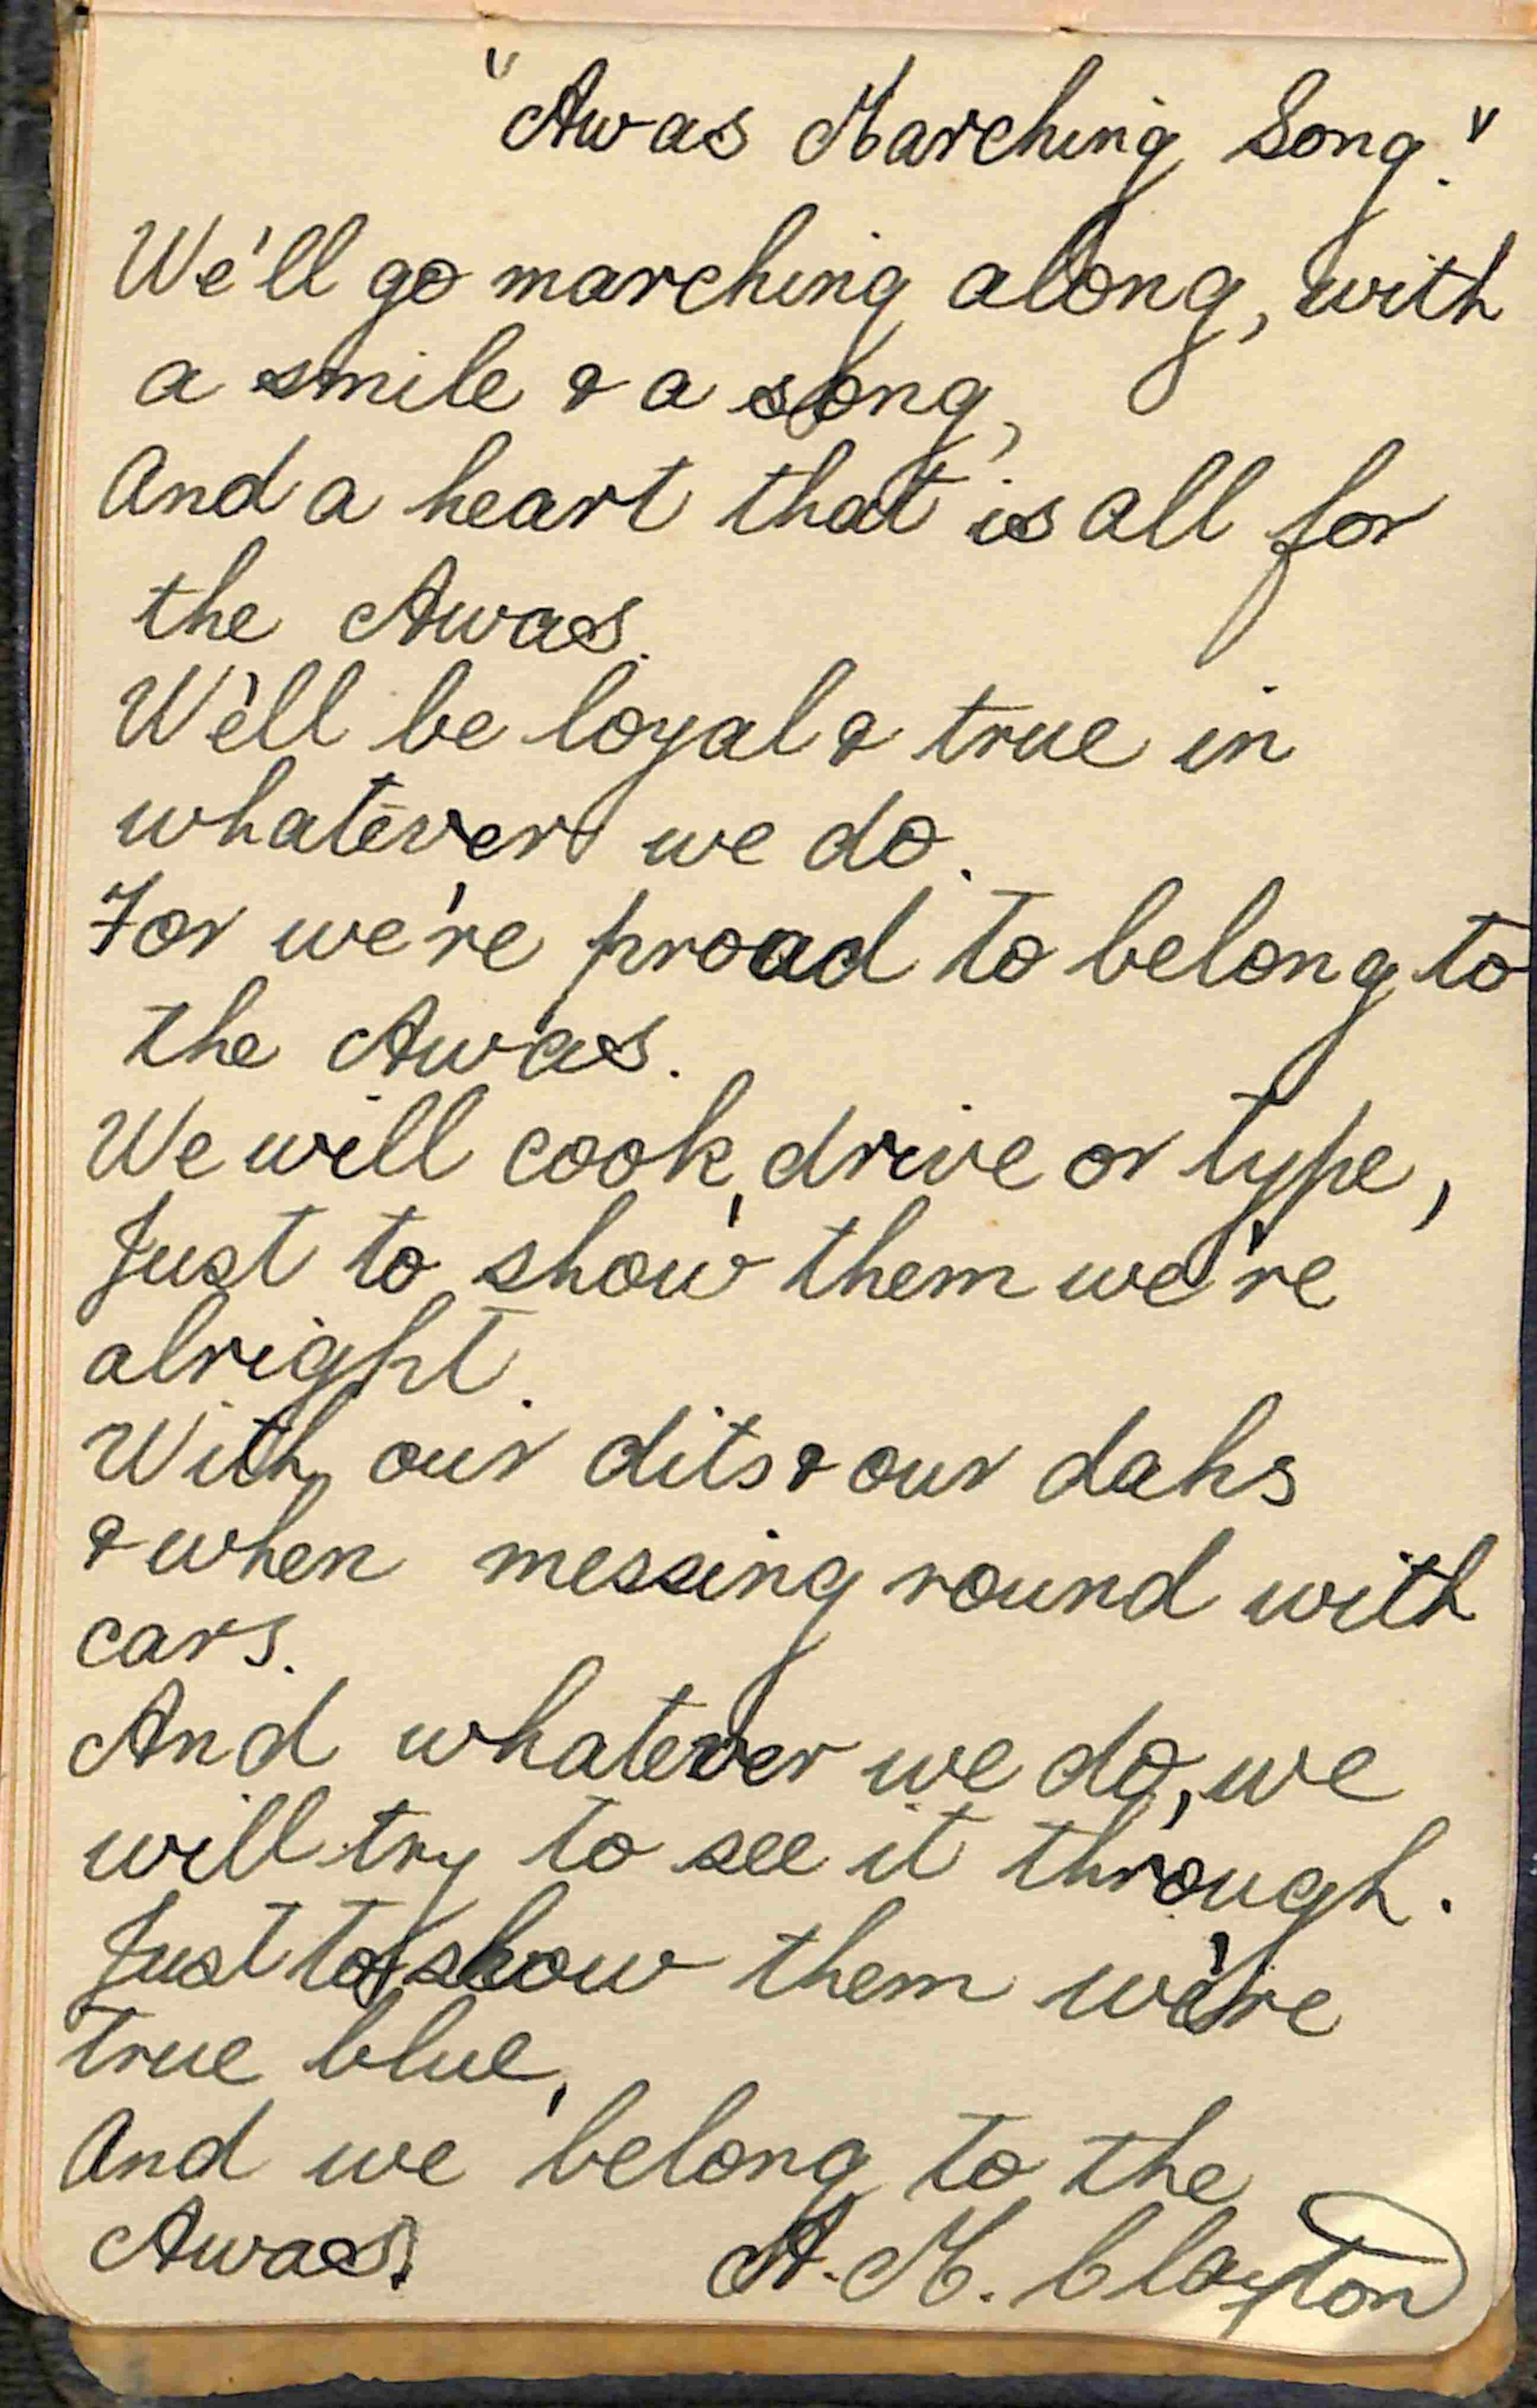 "Awas Marching Song."
We'll go marching along, with
a smile & a song,
And a heart that is all for
the Awas.
We'll be loyal & true in
whatever we do.
For we're proud to belong to
the Awas.
We will cook, drive or type,
Just to show them we're
alright.
With our dits & our dahs
& when messing round with
cars.
And whatever we do, we
will try to see it through.
Just to show them we're
true blue,
And we belong to the
Awas. A. M. Clayton